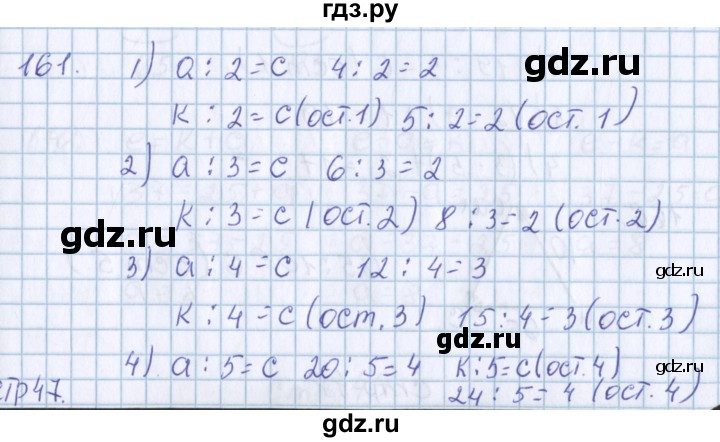 гдз.ру
161. 1) a : 2 = c 4 : 2 = 2
gdz.ru
к : 2 = c (ост. 1) 5 : 2 = 2 (ост. 1)
2) a : 3 = c 6 : 3 = 2
к : 3 = c (ост. 2) 8 : 3 = 2 (ост. 2)
gdz.ru
3) a : 4 = c 12 : 4 = 3
gdz.ru
к : 4 = c (ост. 3) 15 : 4 = 3 (ост. 3)
4) a : 5 = c 20 : 5 = 4 к : 5 = c (ост. 4)
стр 47. 24 : 5 = 4 (ост. 4)
gdz.ru